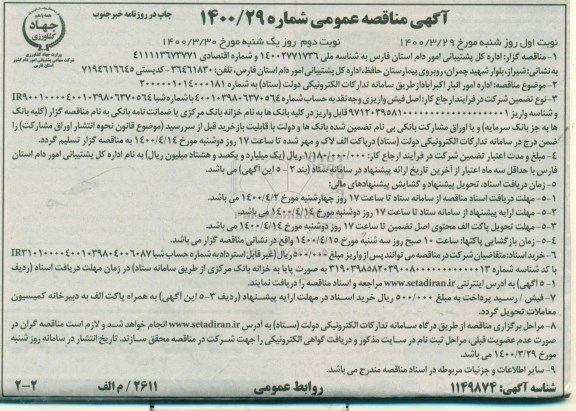 آگهی مناقصه عمومی شماره ۱۴۰۰/۲۹
چاپ در روزنامه خبرجنوب
جهاد
کشاورزی
وزارت جهاد کشاورزی
شرکت سهامی پشتیبانی امور دام کشور
استان فارس
نوبت اول روز شنبه مورخ ۱۴۰۰/۳/۲۹
نوبت دوم روز یک شنبه مورخ ۱۴۰۰/۳/۳۰
۱- مناقصه گزار: اداره کل پشتیبانی امور دام استان فارس به شناسه ملی ۱۴۰۰۲۷۷۱۷۳۶ و شماره اقتصادی ۴۱۱۱۱۳۶۷۳۷۷۱
به نشانی: شیراز، بلوار شهید چمران، روبروی بیمارستان حافظ، اداره کل پشتیبانی امور دام استان فارس، تلفن: ۳۶۴۶۱۸۳۰ - کدپستی ۷۱۹۴۶۱۶۶۴۵
۲- موضوع مناقصه: اداره امور انبار اکبرآباد از طریق سامانه تدارکات الکترونیکی دولت (ستاد) به شماره ۲۰۰۰۰۰۱۰۱۴۰۰۰۱۸۱
۳- نوع تضمین شرکت در فرایند ارجاع کار: اصل فیش واریزی وجه نقد به حساب شماره ۴۰۰۱۰۳۹۸۰۶۳۷۰۵۶۴ با شماره شبا IR۹۰۰۱۰۰۰۰۴۰۰۱۰۳۹۸۰۶۳۷۰۵۶۴
و شناسه واریز قابل واریز در کلیه بانک ها به نام خزانه بانک مرکزی یا ضمانت نامه بانکی به نام مناقصه گزار (کلیه بانک
ها به جز بانک سرمایه) و یا اوراق مشارکت بانکی بی نام تضمین شده بانک ها و دولت با قابلیت بازخرید قبل از سررسید (موضوع قانون نحوه انتشار اوراق مشارکت) را
ضمن درج در سامانه تدارکات الکترونیکی دولت (ستاد) در پاکت الف لاک و مهر شده تا ساعت ۱۷ روز دوشنبه مورخ ۱۴۰۰/۴/۱۴ به مناقصه گزار تسلیم گردد.
۴- مبلغ و مدت اعتبار تضمین شرکت در فرآیند ارجاع کار: ۱/۱۸۰/۰۰۰/۰۰۰ ریال (یک میلیارد و یکصد و هشتاد میلیون ریال) به نام اداره کل پشتیبانی امور دام استان
فارس با حداقل سه ماه اعتبار از آخرین تاریخ ارائه پیشنهاد در سامانه ستاد (بند ۲-۵ این آگهی) می باشد.
۵- زمان دریافت اسناد، تحویل پیشنهاد و گشایش پیشنهادهای مالی:
۵-۱- مهلت دریافت اسناد مناقصه از سامانه ستاد تا ساعت ۱۷ روز چهارشنبه مورخ ۱۴۰۰/۴/۲ می باشد.
۵-۲- مهلت ارایه پیشنهاد از سامانه ستاد تا ساعت ۱۷ روز دوشنبه مورخ ۱۴۰۰/۴/۱۴ می باشد.
۵-۳- مهلت تحویل پاکت الف محتوی اصل تضمین تا ساعت ۱۷ روز دوشنبه مورخ ۱۴۰۰/۴/۱۴
۵-۴- زمان بازگشایی پاکتها: ساعت ۱۰ صبح روز سه شنبه مورخ ۱۴۰۰/۴/۱۵ واقع در نشانی مناقصه گزار می باشد.
۶- خرید اسناد: متقاضیان شرکت در مناقصه می توانند پس از واریز مبلغ ۵۰۰/۰۰۰ ریال (غیر قابل استرداد) به شماره حساب شبا IR۳۱۰۱۰۰۰۰۴۰۰۱۰۳۹۸۰۴۰۰۶۰۸۷
با کد شناسه شماره به صورت پایا به خزانه بانک مرکزی از طریق سامانه ستاد) در زمان مهلت دریافت اسناد (ردیف
۵-۱ آگهی) به آدرس اینترنتی www.setadiran.ir مراجعه و اسناد مناقصه را دریافت نمایند.
۷- فیش / رسید پرداخت به مبلغ ۵۰۰/۰۰۰ ریال خرید اسناد در مهلت ارایه پیشنهاد (ردیف ۳-۵ این آگهی) به همراه پاکت الف به دبیرخانه کمیسیون
معاملات تحویل گردد.
۸- مراحل برگزاری مناقصه از طریق درگاه سامانه تدارکات الکترونیکی دولت (ستاد) به آدرس www.setadiran.ir انجام خواهد شد و لازم است مناقصه گران در
صورت عدم عضویت قبلی، مراحل ثبت نام در سایت مذکور و دریافت گواهی الکترونیکی را جهت شرکت در مناقصه محقق سازند. تاریخ انتشار در سامانه روز شنبه
مورخ ۱۴۰۰/۳/۲۹ می باشد.
۹- سایر اطلاعات و جزئیات مربوطه در اسناد مناقصه مندرج می باشد.
شناسه آگهی: ۱۱۴۹۸۷۴
روابط عمومی
۲۶۱۱ / م الف
۲-۲